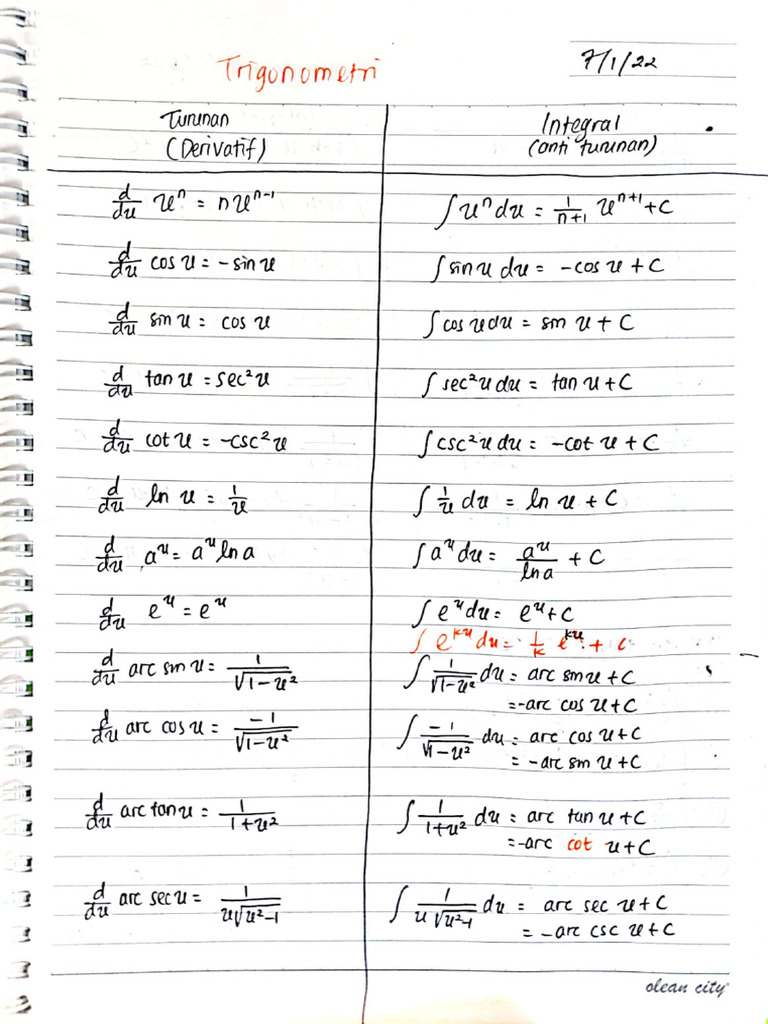 7/1/22
Trigonometri
Turunan
(Derivatif)
Integral
(anti turunan)
d/du uⁿ = nuⁿ⁻¹
∫ uⁿ du = 1/n+1 uⁿ⁺¹ + C
d/du cos u = -sin u
∫ sin u du = -cos u + C
d/du sin u = cos u
∫ cos u du = sin u + C
d/du tan u = sec²u
∫ sec²u du = tan u + C
d/du cot u = -csc²u
∫ csc²u du = -cot u + C
d/du ln u = 1/u
∫ 1/u du = ln u + C
d/du aᵘ = aᵘ ln a
∫ aᵘ du = aᵘ/ln a + C
d/du eᵘ = eᵘ
∫ eᵘ du = eᵘ + C
∫ eᵏᵘ du = 1/k eᵏᵘ + C
d/du arc sin u = 1/√1-u²
∫ 1/√1-u² du = arc sin u + C
= -arc cos u + C
d/du arc cos u = -1/√1-u²
∫ -1/√1-u² du = arc cos u + C
= -arc sin u + C
d/du arc tan u = 1/1+u²
∫ 1/1+u² du = arc tan u + C
= -arc cot u + C
d/du arc sec u = 1/u√u²-1
∫ 1/u√u²-1 du = arc sec u + C
= -arc csc u + C
olean city